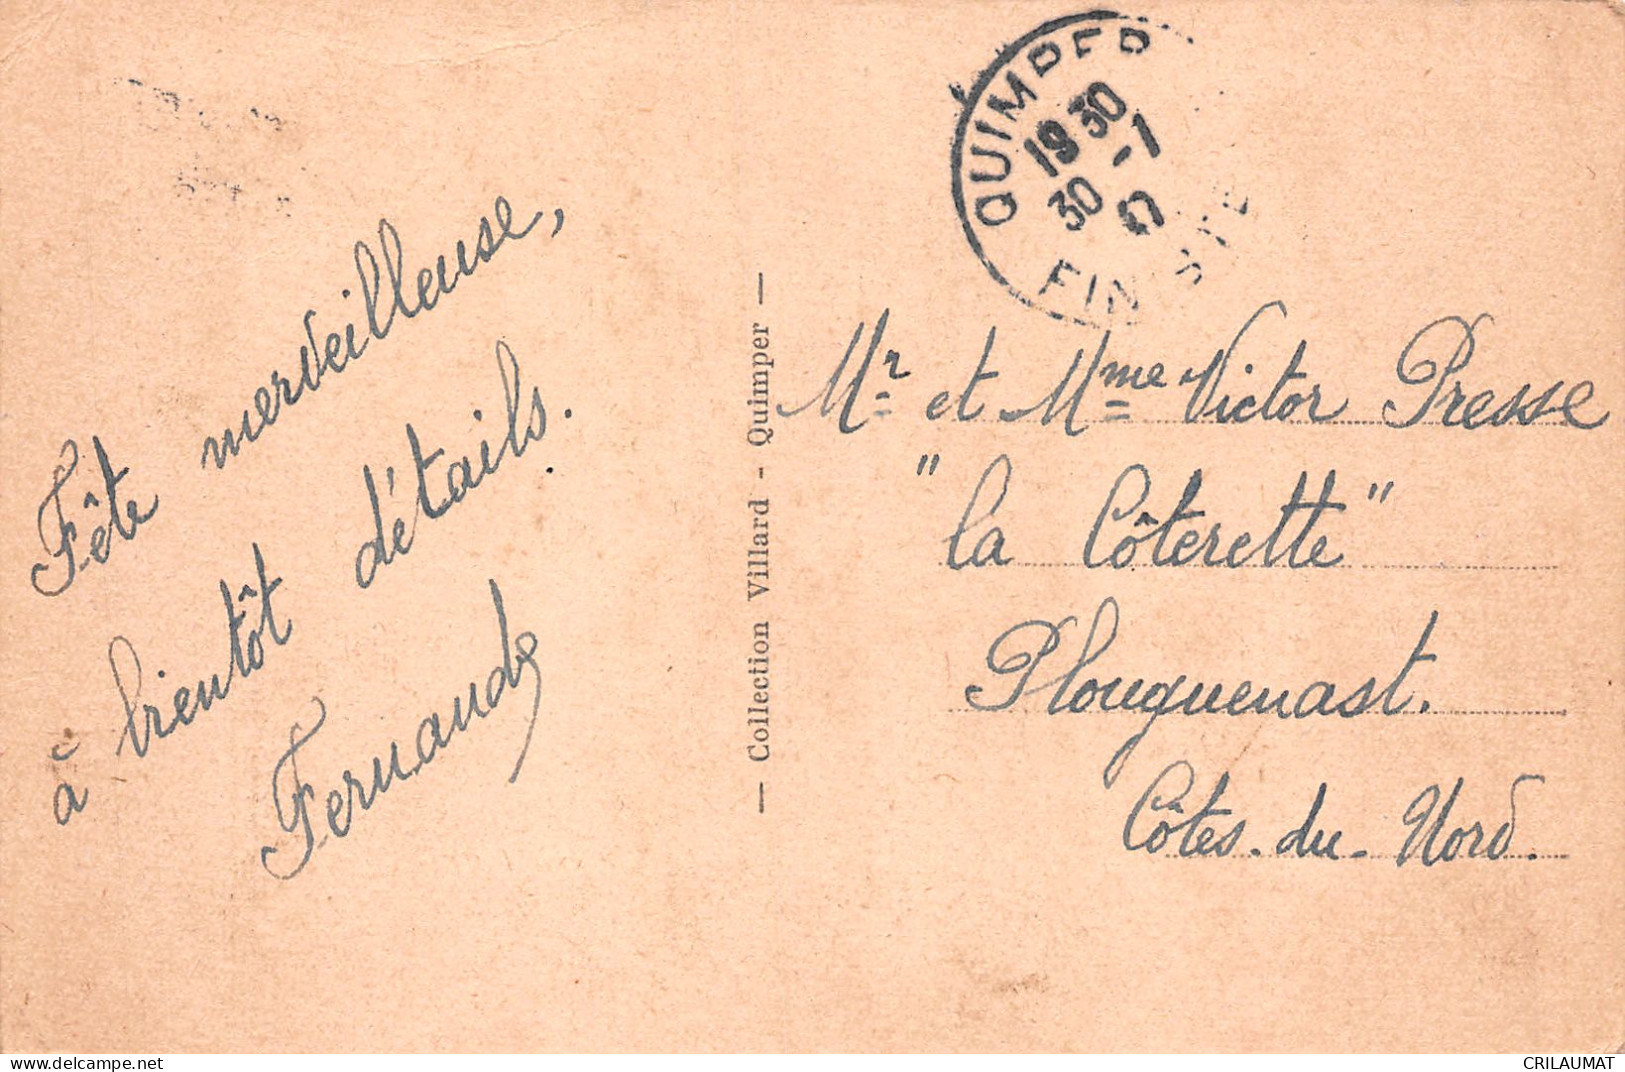 Fête merveilleuse,
à bientôt détails.
Fernande
— Collection Villard - Quimper —
QUIMPER
19 30
30 -1
FINISTE
Mr et Mme Victor Presse
"la Côterette"
Plouguenast.
Côtes-du-Nord.
www.delcampe.net
CRILAUMAT